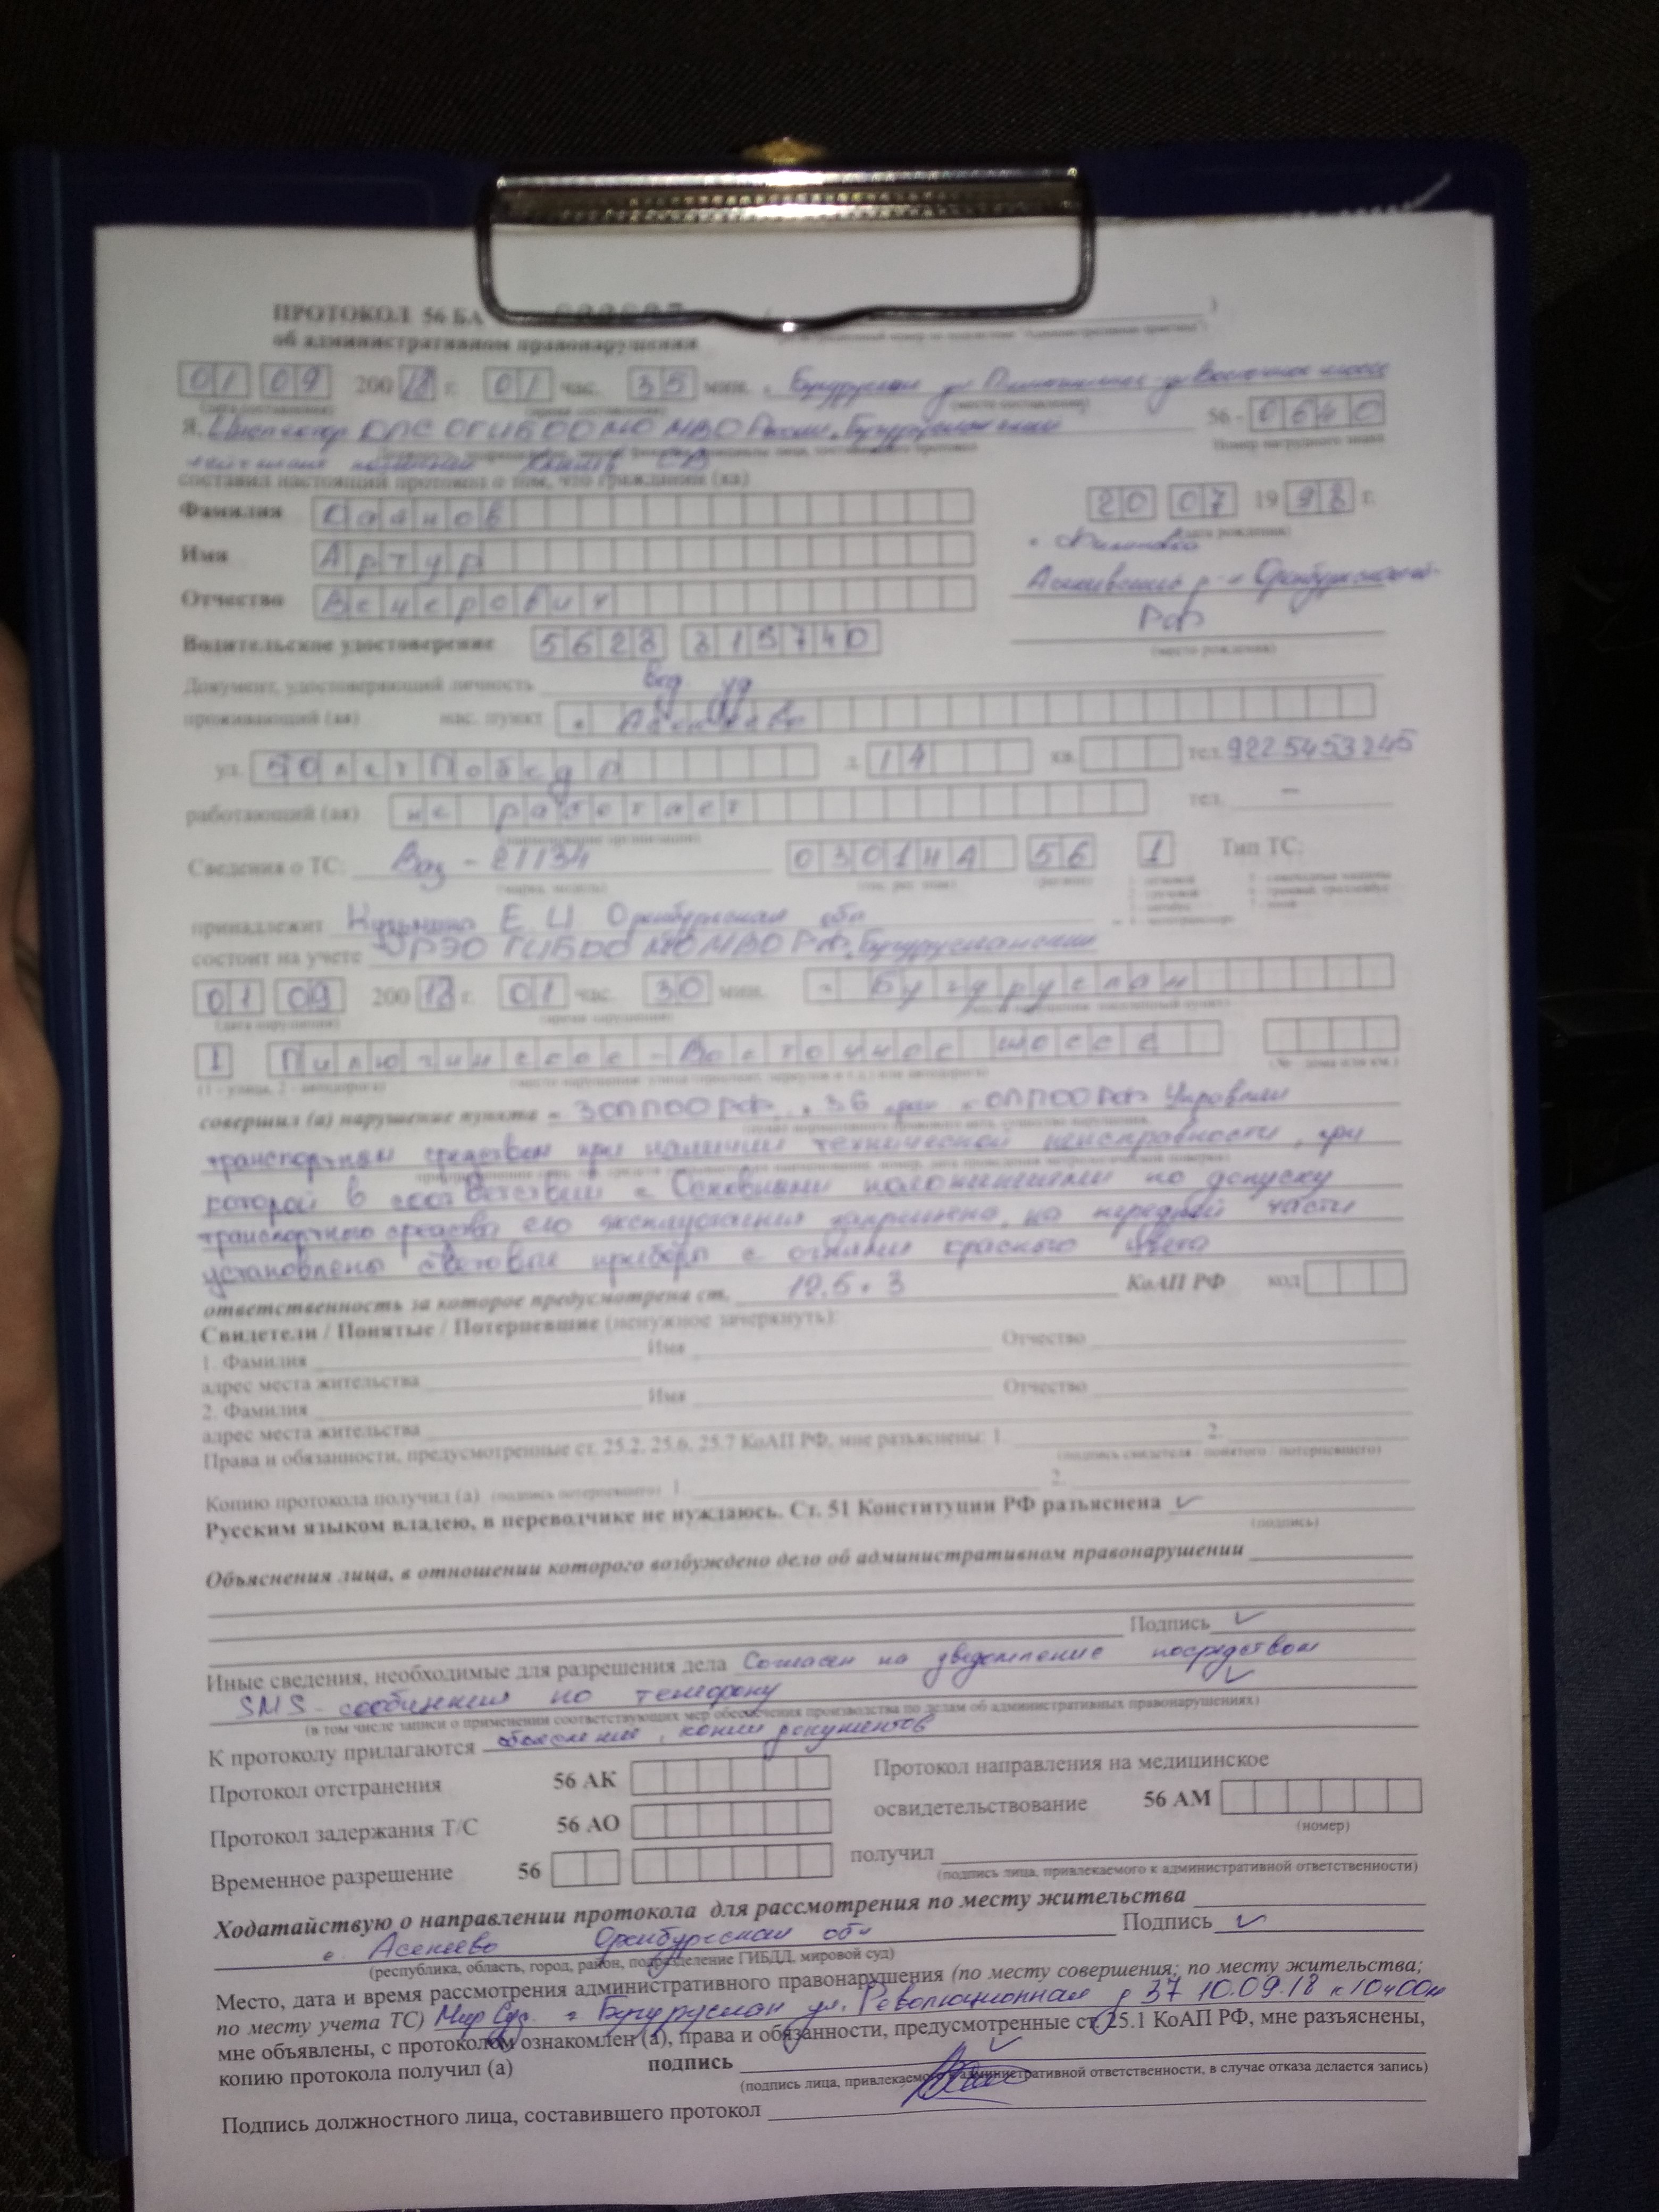 ПРОТОКОЛ 56 БА
об административном правонарушении
01 09 200 18 г. 01 час. 35 мин. г. Бугуруслан ул Пилюгинское - ул Восточное шоссе
(дата составления) (время составления) (место составления)
Я, Инспектор ДПС ОГИБДД МО МВД России „Бугурусланский 56 - 0640
Номер нагрудного знака
лейтенант полиции СВ
составил настоящий протокол о том, что гражданин (ка)
Фамилия 20 07 19 98 г.
(дата рождения)
Имя Артур
Асекеевский р-н Оренбургской
Отчество
РФ
(место рождения)
Водительское удостоверение 5623 315740
Документ, удостоверяющий личность Вод. уд
проживающий (ая) нас. пункт с Асекеево
ул. 50 лет Победы д. 14 кв. тел. 9225453245
работающий (ая) не работает тел. –
(наименование организации)
Сведения о ТС: Ваз - 21134 56 1 Тип ТС:
(марка, модель) (гос. рег. знак) (регион)
принадлежит Е. И Оренбургская обл
состоит на учете РЭО ГИБДД МО МВД РФ „Бугурусланский
01 09 200 18 г. 01 час. 30 мин. г. Бугуруслан
(дата нарушения) (время нарушения)
1 Пилюгинское - Восточное шоссе
(1 - улица, 2 - автодорога) (№ дома или км.)
совершил (а) нарушение пункта п 3 ОП ПДД РФ, п 3.6 ОП ПДД РФ Управлял
транспортным средством при наличии технической неисправности, при
которой в соответствии с Основными положениями по допуску
транспортного средства его эксплуатация запрещена, на передней части
установлены световые приборы с огнями красного цвета
ответственность за которое предусмотрена ст. 12.5 ч 3 КоАП РФ код
Свидетели / Понятые / Потерпевшие (ненужное зачеркнуть):
1. Фамилия Имя Отчество
адрес места жительства
2. Фамилия Имя Отчество
адрес места жительства
Права и обязанности, предусмотренные ст. 25.2, 25.6, 25.7 КоАП РФ, мне разъяснены: 1. 2.
(подпись свидетеля / понятого / потерпевшего)
Копию протокола получил (а) (подпись потерпевшего) 1. 2.
Русским языком владею, в переводчике не нуждаюсь. Ст. 51 Конституции РФ разъяснена
(подпись)
Объяснения лица, в отношении которого возбуждено дело об административном правонарушении
Подпись
Иные сведения, необходимые для разрешения дела Согласен на уведомление посредством
SMS - сообщения по телефону
(в том числе записи о применении соответствующих мер обеспечения производства по делам об административных правонарушениях)
К протоколу прилагаются объяснение, копии документов
Протокол отстранения 56 АК Протокол направления на медицинское
освидетельствование 56 АМ
(номер)
Протокол задержания Т/С 56 АО
Временное разрешение 56 получил
(подпись лица, привлекаемого к административной ответственности)
Ходатайствую о направлении протокола для рассмотрения по месту жительства
с. Асекеево Оренбургская обл Подпись
(республика, область, город, район, подразделение ГИБДД, мировой суд)
Место, дата и время рассмотрения административного правонарушения (по месту совершения; по месту жительства;
по месту учета ТС) Мир Суд. г Бугуруслан ул. Революционная д 37 10.09.18 в 10ч00м
мне объявлены, с протоколом ознакомлен (а), права и обязанности, предусмотренные ст. 25.1 КоАП РФ, мне разъяснены,
копию протокола получил (а) подпись
(подпись лица, привлекаемого к административной ответственности, в случае отказа делается запись)
Подпись должностного лица, составившего протокол